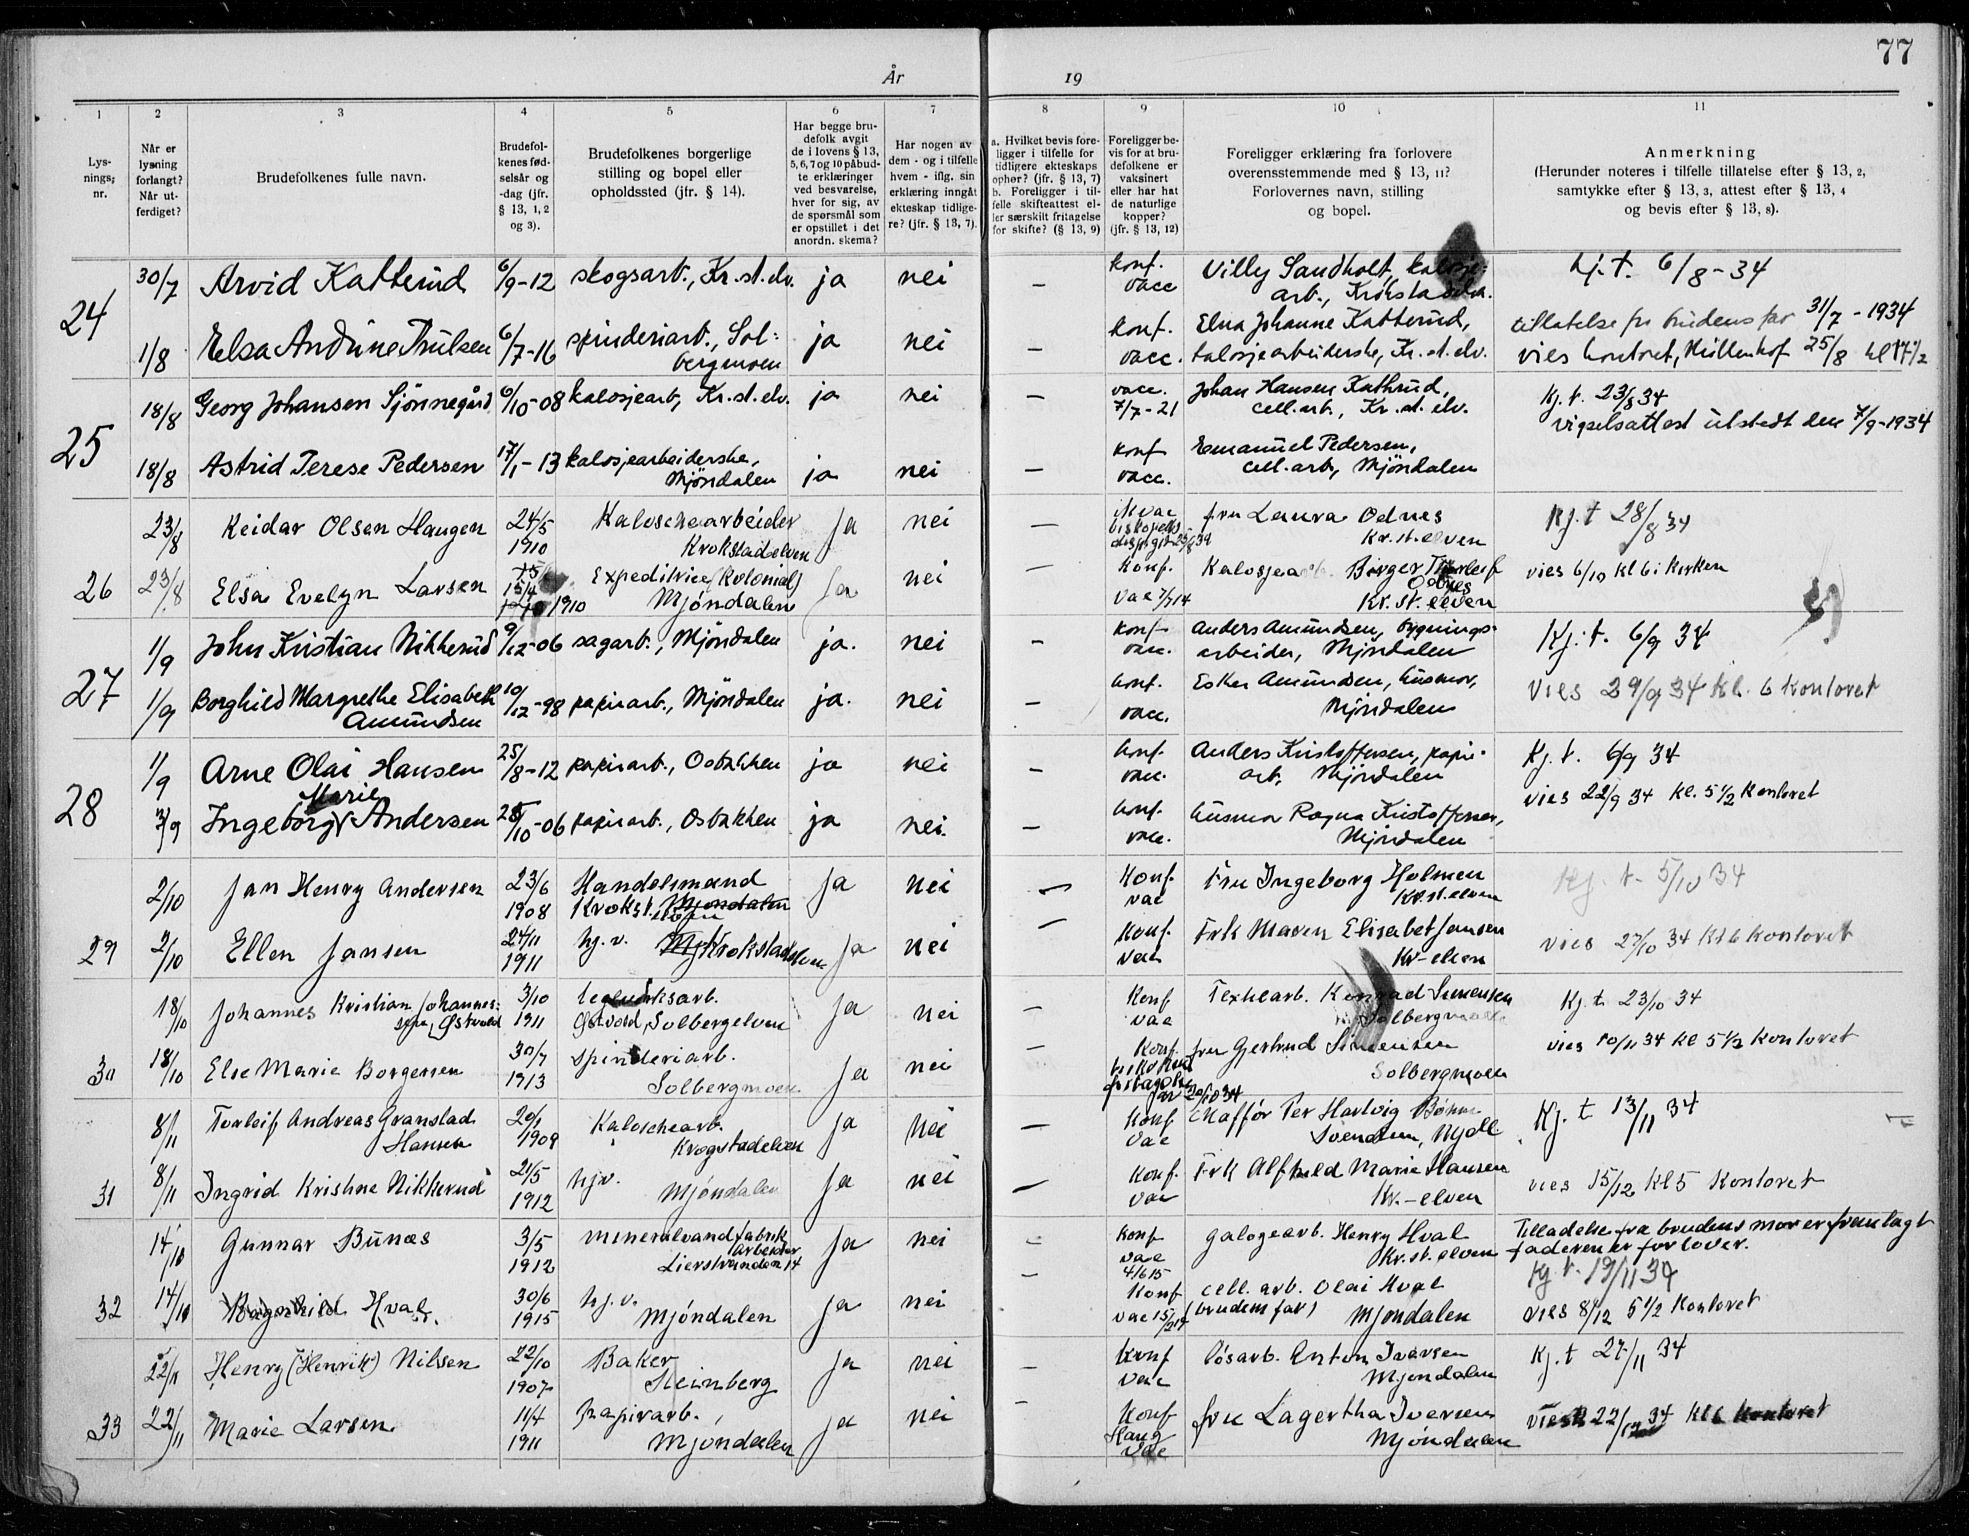 77
År 19
1 2 3 4 5 6 7 8 9 10 11
Lys-
nings-
nr.
Når er
lysning
forlangt?
Når ut-
ferdiget?
Brudefolkenes fulle navn.
Brudefol-
kenes fød-
selsår og
-dag (jfr.
§ 13, 1, 2
og 3).
Brudefolkenes borgerlige
stilling og bopel eller
opholdssted (jfr. § 14).
Har begge bru-
defolk avgit
de i lovens § 13,
5, 6, 7 og 10 påbud-
te erklæringer
ved besvarelse,
hver for sig, av
de spørsmål som
er opstillet i det
anordn. skema?
Har nogen av
dem - og i tilfelle
hvem - iflg. sin
erklæring inngått
ekteskap tidlige-
re? (jfr. § 13, 7).
a. Hvilket bevis fore-
ligger i tilfelle for
tidligere ekteskaps
ophør? (jfr. § 13, 7)
b. Foreligger i til-
felle skifteattest el-
ler særskilt fritagelse
for skifte? (§ 13, 9)
Foreligger be-
vis for at bru-
defolkene er
vaksinert
eller har hat
de naturlige
kopper?
(jfr. § 13, 12)
Foreligger erklæring fra forlovere
overensstemmende med § 13, 11?
Forlovernes navn, stilling
og bopel.
Anmerkning
(Herunder noteres i tilfelle tillatelse efter § 13, 2,
samtykke efter § 13, 3, attest efter § 13, 4
og bevis efter § 13, 8).
24
30/7 Arvid Katterud 6/9-12 skogsarb., Kr.st.elv. ja nei - konf. vacc Villy Sandholt, kalosje-
arb., Krokstadelv.
kj.t. 6/8-34
1/8 Elsa Andrine Trulsen 6/7-16 spinderiarb., Sol-
bergmoen ja nei - konf. vacc. Elna Johanne Katterud,
kalosjearbeiderske, Kr.st.elv.
tillatelse fra brudens far 31/7-1934
vies kontoret, Möllenhof 25/8 kl 17 1/2
25
18/8 Georg Johansen Sjönnegård 6/10-08 kalosjearb, Kr.st.elv. ja nei - vacc. 7/7-21 Johan Hansen Kathrud,
cell.arb., Kr.st.elv.
Kj.t. 23/8 34
vigselsattest utstedt den 7/9-1934
18/8 Astrid Terese Pedersen 17/1-13 kalosjearbeiderske,
Mjöndalen ja nei - konf vacc. Emanuel Pedersen,
cell.arb, Mjöndalen
26
23/8 Reidar Olsen Haugen 24/5 1910 Kaloschearbeider
Krokstadelven Ja nei - fru Laura Odnes
Kr.st.elven
Kj.t 28/8 34
23/8 Elsa Evelyn Larsen 15/4 1910 Expeditrice (Kolonial)
Mjöndalen Ja nei Konf. vac 7/7 14 Kalosjearb. Birger Odnes
Kr.st.elven
vies 6/10 kl 6 i kirken
27
1/9 John Kristian Nikkerud 9/12-06 sagarb., Mjöndalen ja. nei - konf vacc. Anders Amundsen, bygnings-
arbeider, Mjöndalen
Kj.t. 6/9 34
1/9 Borghild Margrethe Elisabeth
Amundsen 10/12-98 papirarb., Mjöndalen ja. nei - konf. vacc. Ester Amundsen, husmor,
Mjöndalen
Vies 29/9 34 Kl. 6 Kontoret
28
1/9 Arne Olai Hansen 25/8-12 papirarb., Osbakken ja nei - konf. vacc. Anders Kristoffersen, papir-
arb, Mjöndalen
Kj.t. 6/9 34
3/9 Ingeborg Marie Andersen 28/10-06 papirarb., Osbakken ja nei. - konf. vacc. husmor Ragna Kristoffersen,
Mjöndalen
vies 22/9 34 kl. 5 1/2 Kontoret
29
2/10 Jan Henry Andersen 23/6 1908 Handelsmand
Krokst. Mjöndalen
elven Ja nei - Konf. vac Fru Ingeborg Holmen
Kr.st.elven
Kj.t. 5/10 34
2/10 Ellen Jansen 24/11 1911 hj.v. Krokstadelven Ja nei - Konf. vac Frk Maren Elisabet Jansen
Kr-elven
vies 27/10 34 Kl 6 Kontoret
30
18/10 Johannes Kristian Johannes-
sen Østvold 3/10 1911 teglverksarb.
Østvold, Solbergelven Ja nei - Konf vac Textilarb. Konrad Simensen
Solbergmoen
Kj.t. 23/10 34
18/10 Else Marie Borgersen 30/7 1913 Spinderiarb.
Solbergmoen Ja nei - Konf. fru Gjertrud Simensen
Solbergmoen
vies 10/11 34 kl 5 1/2 Kontoret
31
8/11 Torleif Andreas Granstad
Hansen 20/1 1909 Kaloschearb.
Krogstadelven Ja Nei - Konf vac Chaffør Per Hartvig Bøhm
Svendsen, Mjdl
Kj.t 13/11 34
8/11 Ingrid Kristine Nikkerud 21/5 1912 hjv. Mjöndalen Ja nei - Konf. vac Frk Alfhild Marie Hansen
Kr.-elven
vies 15/12 Kl 5 Kontoret
32
14/10 Gunnar Bunæs 3/5 1912 mineralvandfabrik
arbeider
Lierstranden 14 Ja nei - Konf vac 4/6 15 Galogearb. Henry Hval
Kr.st.elven
Tilladelse fra brudens mor er fremlagt
faderen er forlover.
Kj.t. 19/11 34
14/10 Ragnhild Hval 30/6 1915 hj.v. Mjöndalen Ja nei - Konf vac 15/2 17 cell. arb. Olai Hval
(brudens far) Mjöndalen
vies 8/12 5 1/2 Kontoret
33
22/11 Henry (Henrik) Nilsen 22/10 1907 Baker
Steinberg Ja nei - Konf vac løsarb. Anton Iversen
Mjöndalen
Kj.t 27/11 34
22/11 Marie Larsen 11/4 1911 papirarb.,
Mjöndalen Ja nei - Konf Haug vac fru Lagertha Iversen
Mjöndalen
vies 22/12 34 Kl 6 Kontoret